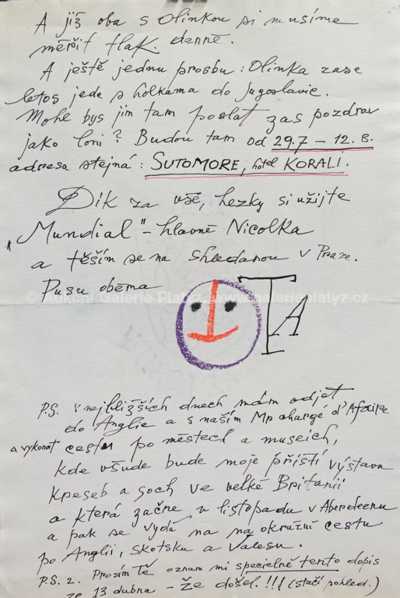 A již oba s Olinkou si musíme
měřit tlak. denně.
A ještě jednu prosbu: Olinka zase
letos jede s holkama do Jugoslavie.
Mohl bys jim tam poslat zas pozdrav
jako loni? Budou tam od 29.7 – 12.8.
adresa stejná: SUTOMORE, hotel KORALI.
Dík za vše, hezky si užijte
„Mundial" – hlavně Nicolka
a těším se na shledanou v Praze.
Pusu oběma
OTA
P.S. v nejbližších dnech mám odjet
do Anglie a s naším Mp chargé d'Afaire
a vykonat cestu po městech a museích,
kde všude bude moje příští výstava
kreseb a soch ve velké Británii
a která začne v listopadu v Aberdeenu
a pak se vydá na okružní cestu
po Anglii, Skotsku a Walesu.
P.S. 2. Prosím Tě oznam mi specielně tento dopis
ze 13 dubna – že došel.!!! (stačí pohled.)